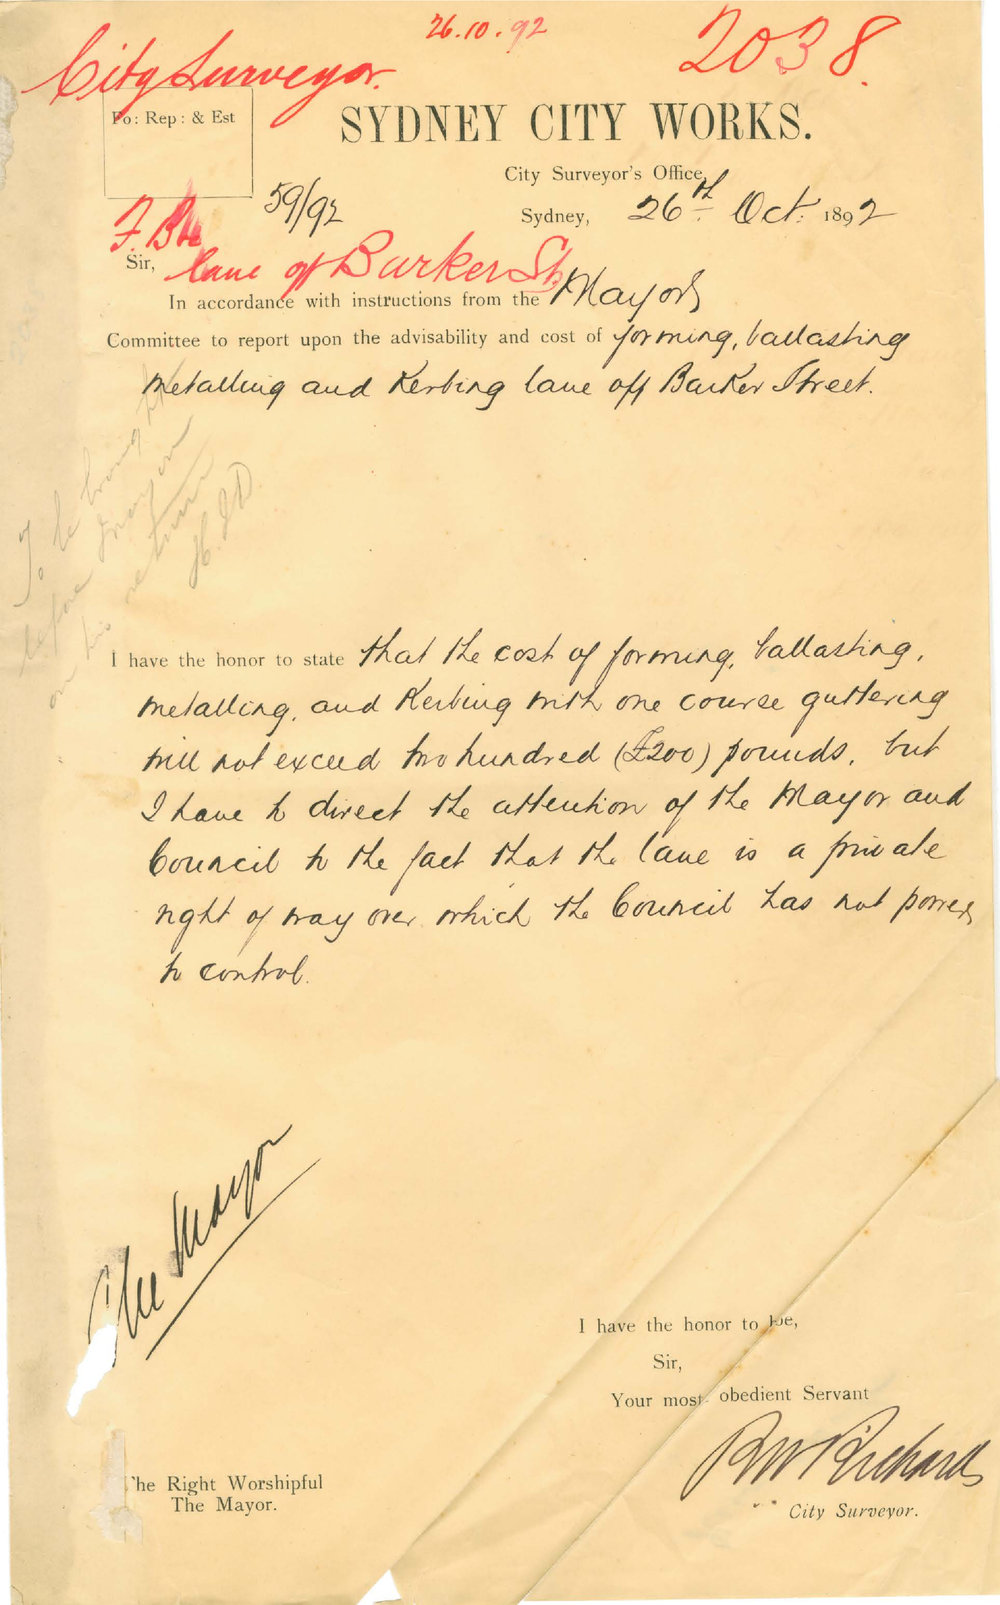 26.10.92
2038.
City Surveyor.
Po: Rep: & Est
SYDNEY CITY WORKS.
City Surveyor's Office,
59/92
Sydney, 26th Oct. 1892
Sir,
lane off Barker St.
In accordance with instructions from the Mayor,
Committee to report upon the advisability and cost of forming, ballasting
metalling and Kerbing lane off Barker Street.
To be brought
before Mayor
on his return
I have the honor to state that the cost of forming, ballasting,
metalling, and Kerbing with one course guttering
will not exceed two hundred (£200) pounds, but
I have to direct the attention of the Mayor and
Council to the fact that the lane is a private
right of way over which the Council has not power
to control.
The Mayor
I have the honor to be,
Sir,
Your most obedient Servant
RW Richards
City Surveyor.
The Right Worshipful
The Mayor.